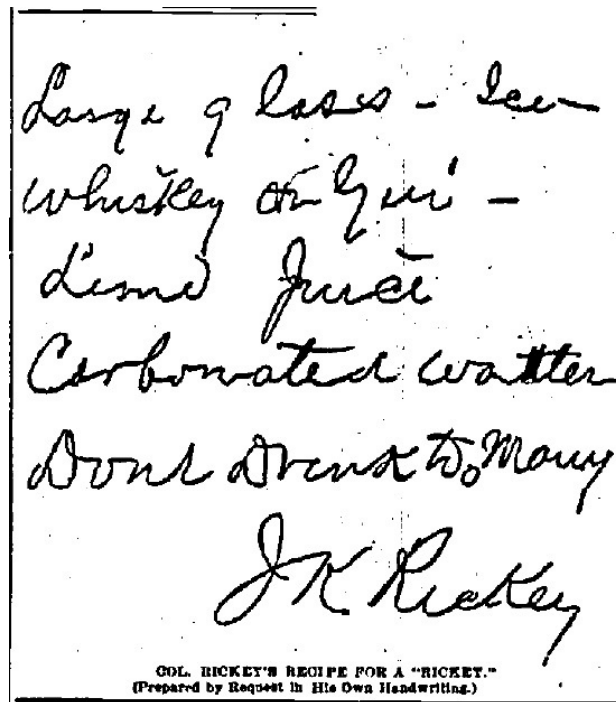 Large glass - Ice
Whiskey or Gin -
Lime Juice
Carbonated watter
Dont Drink To Many
J K Rickey
COL. RICKEY'S RECIPE FOR A "RICKEY."
(Prepared by Request in His Own Handwriting.)